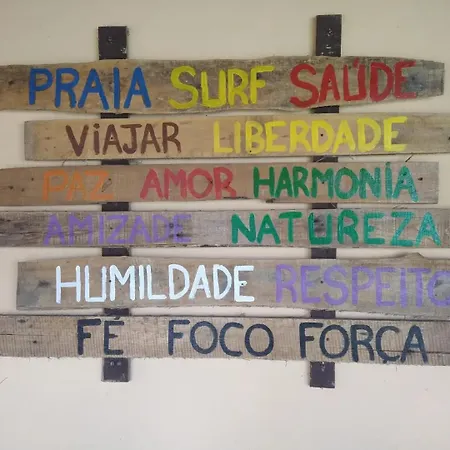 PRAIA SURF SAÚDE
VIAJAR LIBERDADE
PAZ AMOR HARMONIA
AMIZADE NATUREZA
HUMILDADE RESPEITO
FÉ FOCO FORÇA